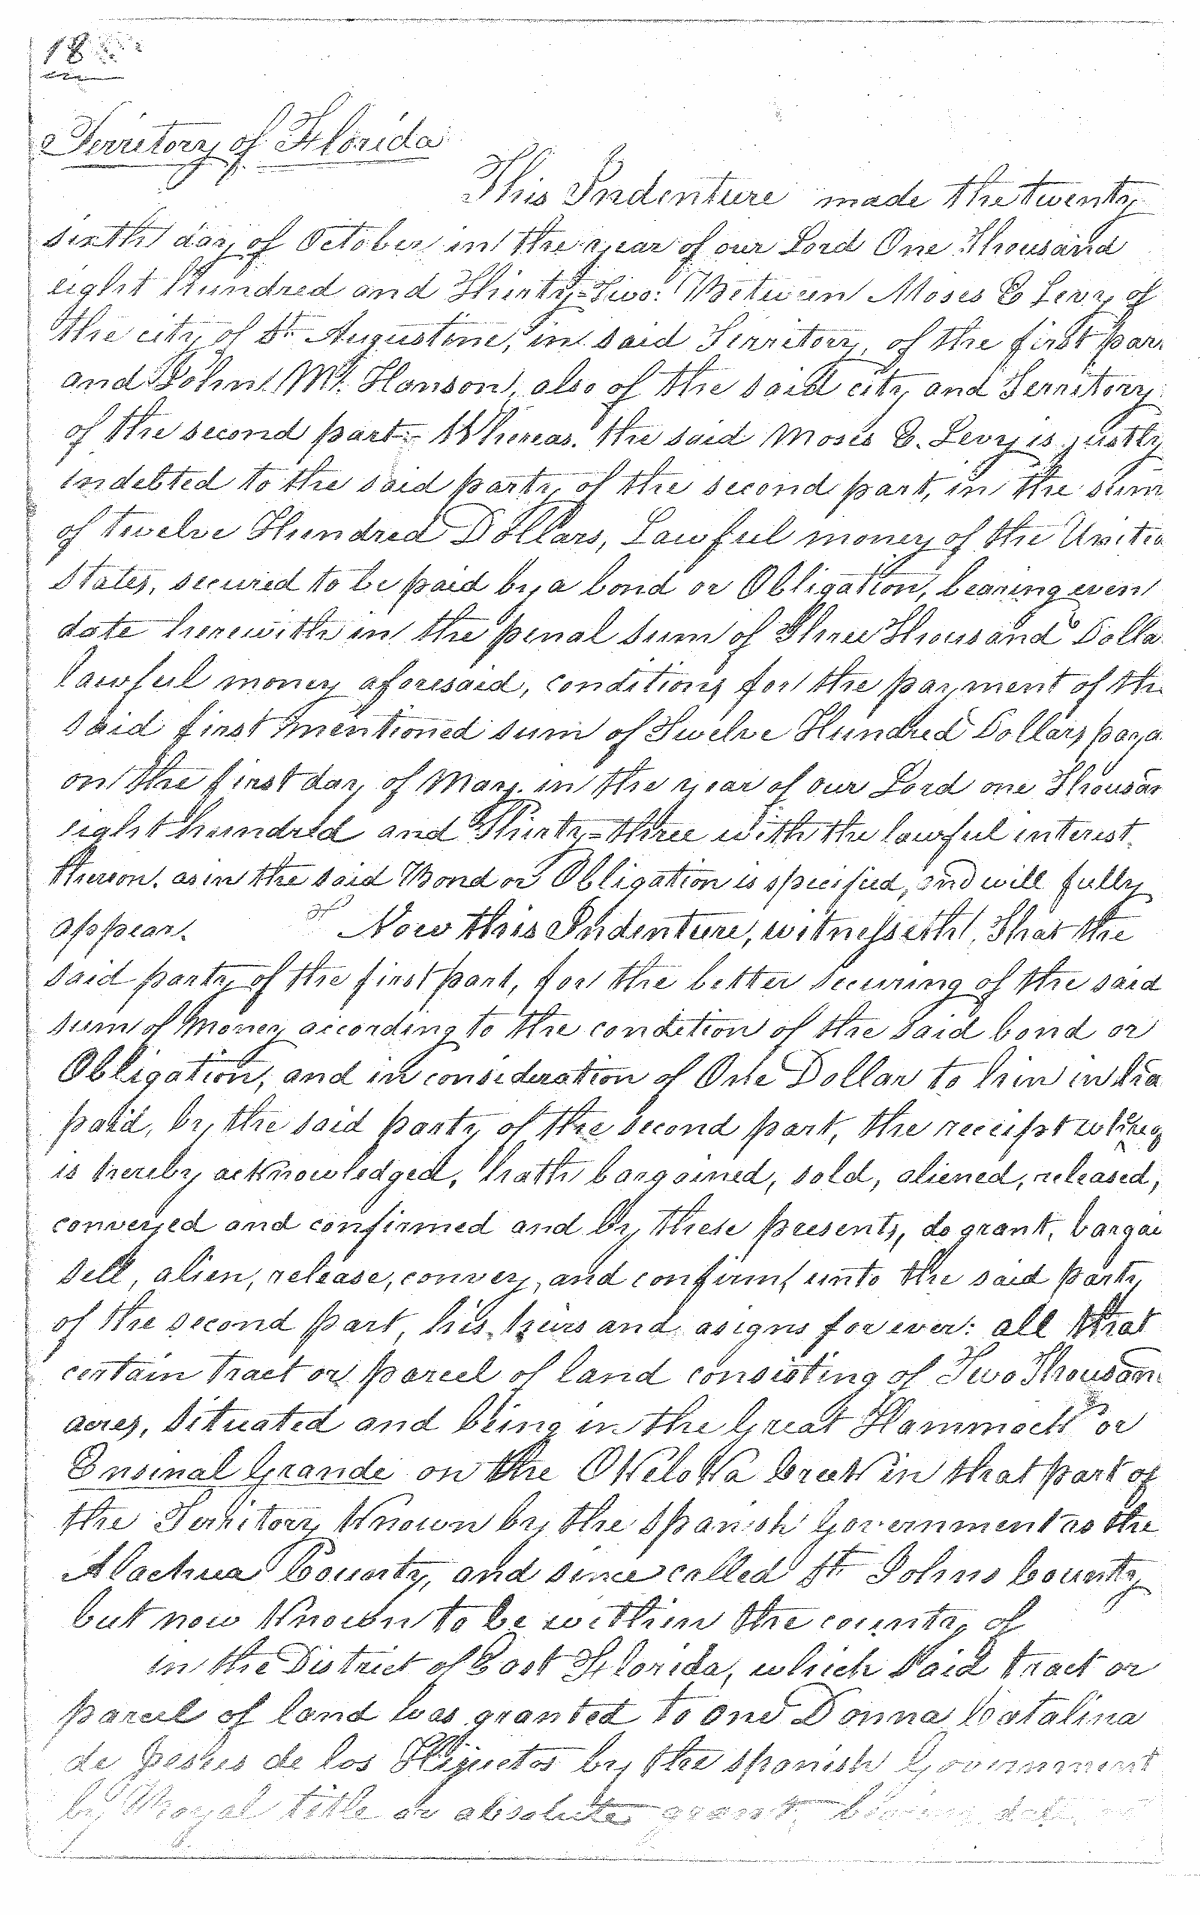 18
Territory of Florida
This Indenture made the twenty
sixth day of October in the year of our Lord One Thousand
eight Hundred and Thirty=Two: Between Moses E Levy of
the city of St. Augustine, in said Territory, of the first par
and John M. Hanson, also of the said city and Territory
of the second part. Whereas. the said Moses E. Levy is justly
indebted to the said party of the second part, in the sum
of twelve Hundred Dollars, Lawful money of the Unite
States, secured to be paid by a bond or Obligation, bearing even
date herewith in the penal sum of Three Thousand Dolla
lawful money aforesaid, conditions for the payment of the
said first mentioned sum of Twelve Hundred Dollars paya
on the first day of May in the year of our Lord one Thousan
eight hundred and Thirty=three with the lawful interest.
thereon. as in the said Bond or Obligation is specified, and will fully
appear. Now this Indenture, witnesseth, That the
said party of the first part, for the better securing of the said
sum of Money according to the condition of the said bond or
Obligation, and in consideration of One Dollar to him in ha
paid, by the said party of the second part, the receipt whereof
is hereby acknowledged, hath bargained, sold, aliened, released,
conveyed and confirmed and by these presents, do grant, bargai
sell, alien, release, convey, and confirm, unto the said party
of the second part, his heirs and asigns for ever: all that
certain tract or parcel of land consisting of Two Thousan
acres, situated and being in the Great Hammock or
Ensinal Grande on the OKeloKa Creek in that part of
the Territory Known by the Spanish Government as the
Alachua County, and since called St. Johns County
but now Known to be within the county of
in the District of East Florida, which said tract or
parcel of land was granted to one Donna Catalina
de Jesus de los Hijuetos by the Spanish Government
by Royal title or absolute grant, bearing date